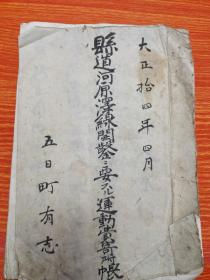 大正拾四年四月
縣道河原澤線開鑿ニ要スル運動費寄附帳
五日町有志